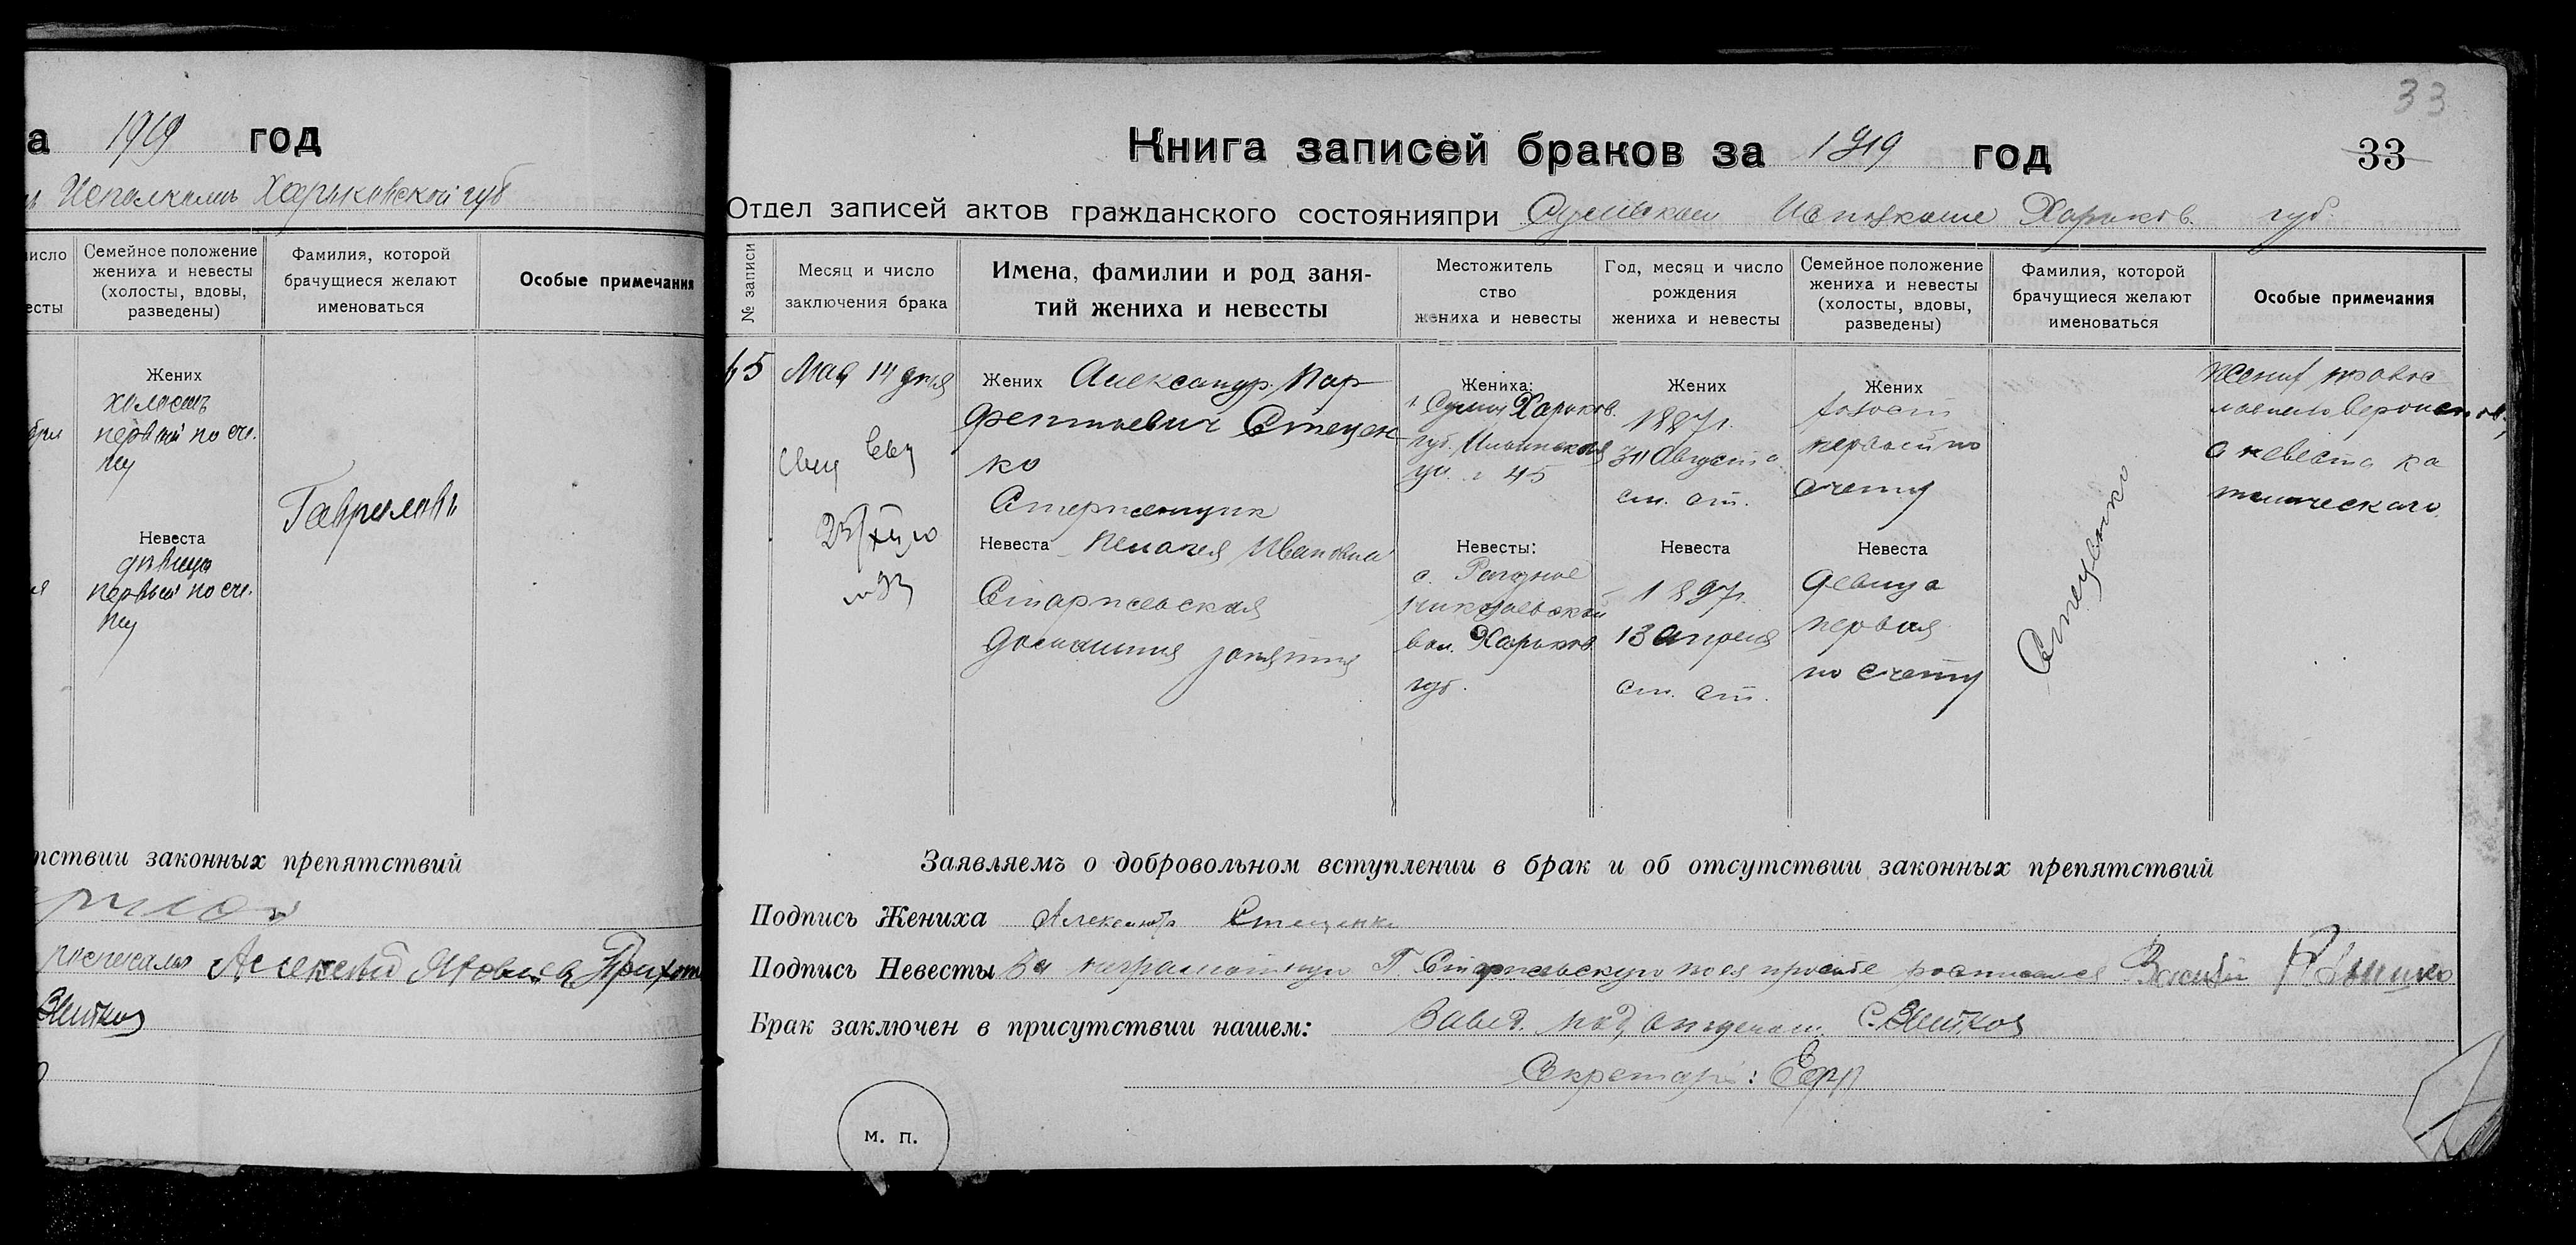 а 1919 год
Исполкомъ Харьковской губ
исло
есты
Семейное положение
жениха и невесты
(холосты, вдовы,
разведены)
Фамилия, которой
брачущиеся желают
именоваться
Особые примечания
Жених
холостъ
первый по сче-
ту
Гаврилові
Невеста
дѣвица
первый по сче-
ту
тствии законных препятствий
Алексей Яковлев
33
Книга записей браков за 1919 год
33
Отдел записей актов гражданского состояния при Сумском Исполкоме Харьков. губ.
№ записи
Месяц и число
заключения брака
Имена, фамилии и род заня-
тий жениха и невесты
Местожитель
ство
жениха и невесты
Год, месяц и число
рождения
жениха и невесты
Семейное положение
жениха и невесты
(холосты, вдовы,
разведены)
Фамилия, которой
брачущиеся желают
именоваться
Особые примечания
65
Мая 14 дня
Жених Александр Пар-
фентьевич Стецен-
ко
Стерженщик
Невеста Пелагея Ивановна
Старжевская
домашния занятия
Жениха:
г. Сумы Харьков.
губ. Ильинская
ул. 45
Невесты:
с.
Николаевской
вол. Харьков
губ.
Жених
1897г.
30 Августа
ст. ст.
Невеста
1897г.
13 апреля
ст. ст.
Жених
холост
первый по
счету
Невеста
девица
первая
по счету
Стеценко
Жених правос
лавного вероиспов.,
а невеста ка
толического.
Заявляемъ о добровольном вступлении в брак и об отсутствии законных препятствий
Подпись Жениха Александр Стеценко
Подпись Невесты За неграмотную П Старжевскую по ея просьбе росписался Василий
Брак заключен в присутствии нашем: Завед. под отделом
Секретарь:
м. п.